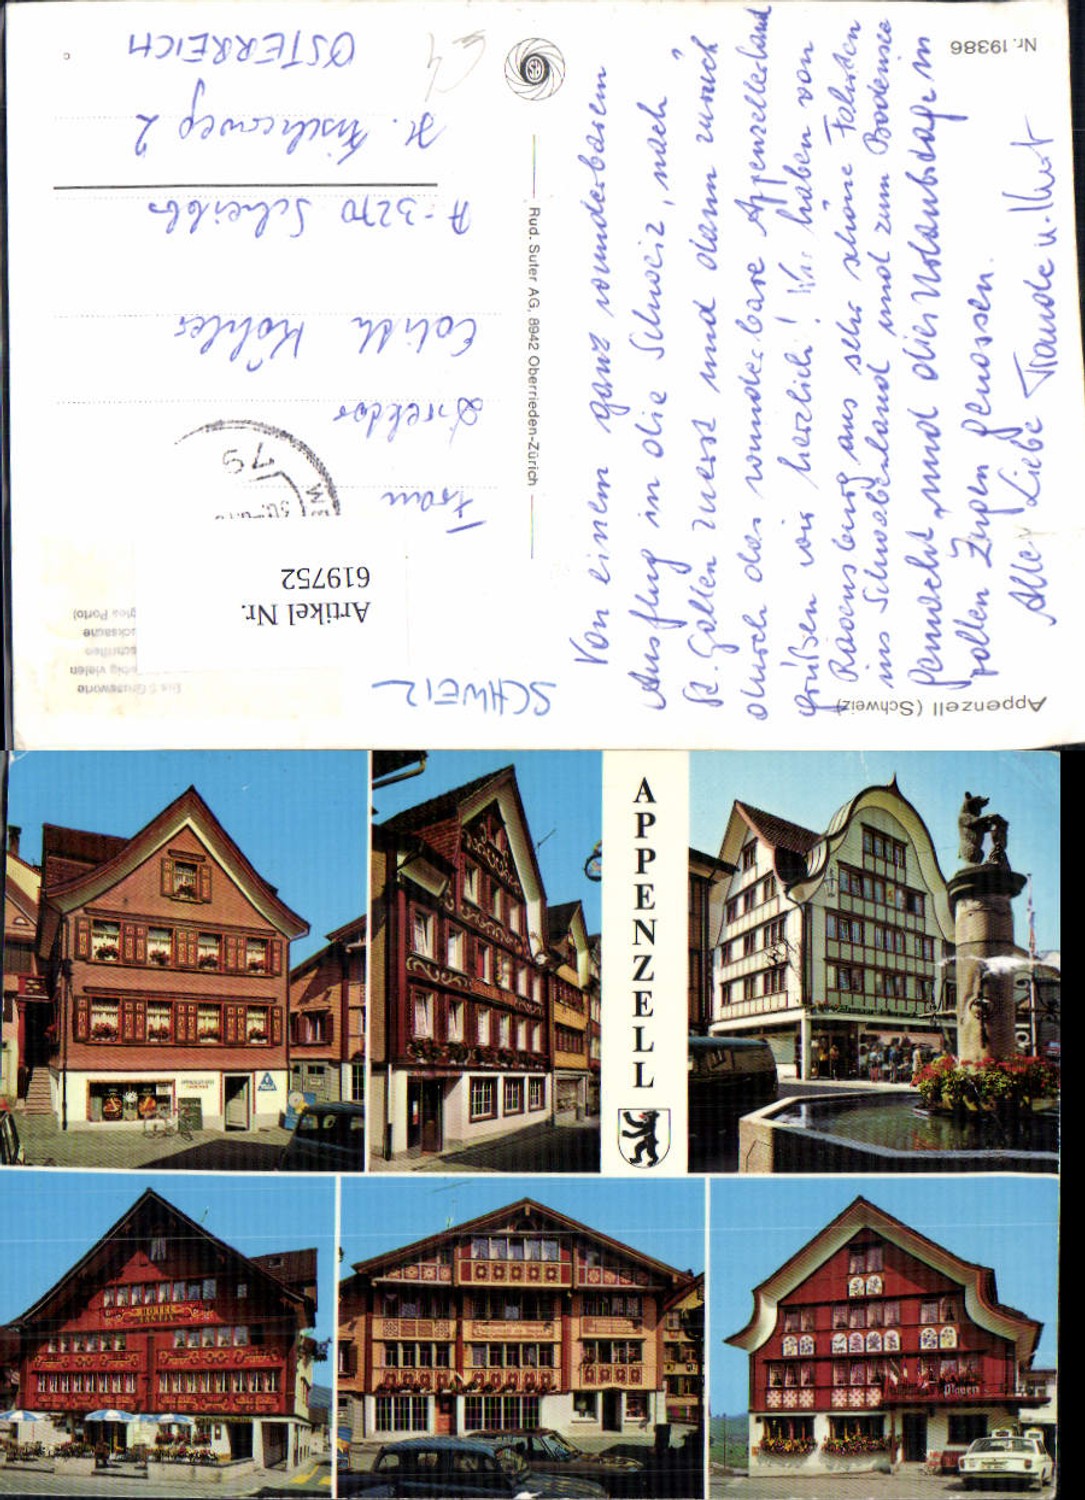 Nr. 19386
Appenzell (Schweiz)
Von einem ganz wunderbaren
Ausflug in die Schweiz, nach
St. Gallen zuerst und dann zurück
durch das wunderbare Appenzellerland
grüßen wir herzlich! Wir haben von
Ravensburg aus sehr schöne Fahrten
ins Schwabenland und zum Bodensee
gemacht und die Urlaubstage in
vollen Zügen genossen.
Alles Liebe Traude u. Kurt
Rud. Suter AG, 8942 Oberrieden-Zürich
SCHWEIZ
Artikel Nr.
619752
79
Frau
Direktor
Edith Köhler
A-3270 Scheibbs
H. Fischerweg 2
ÖSTERREICH
Bis 5 Grussworte
vielen
Porto)
APPENZELL
HOTEL